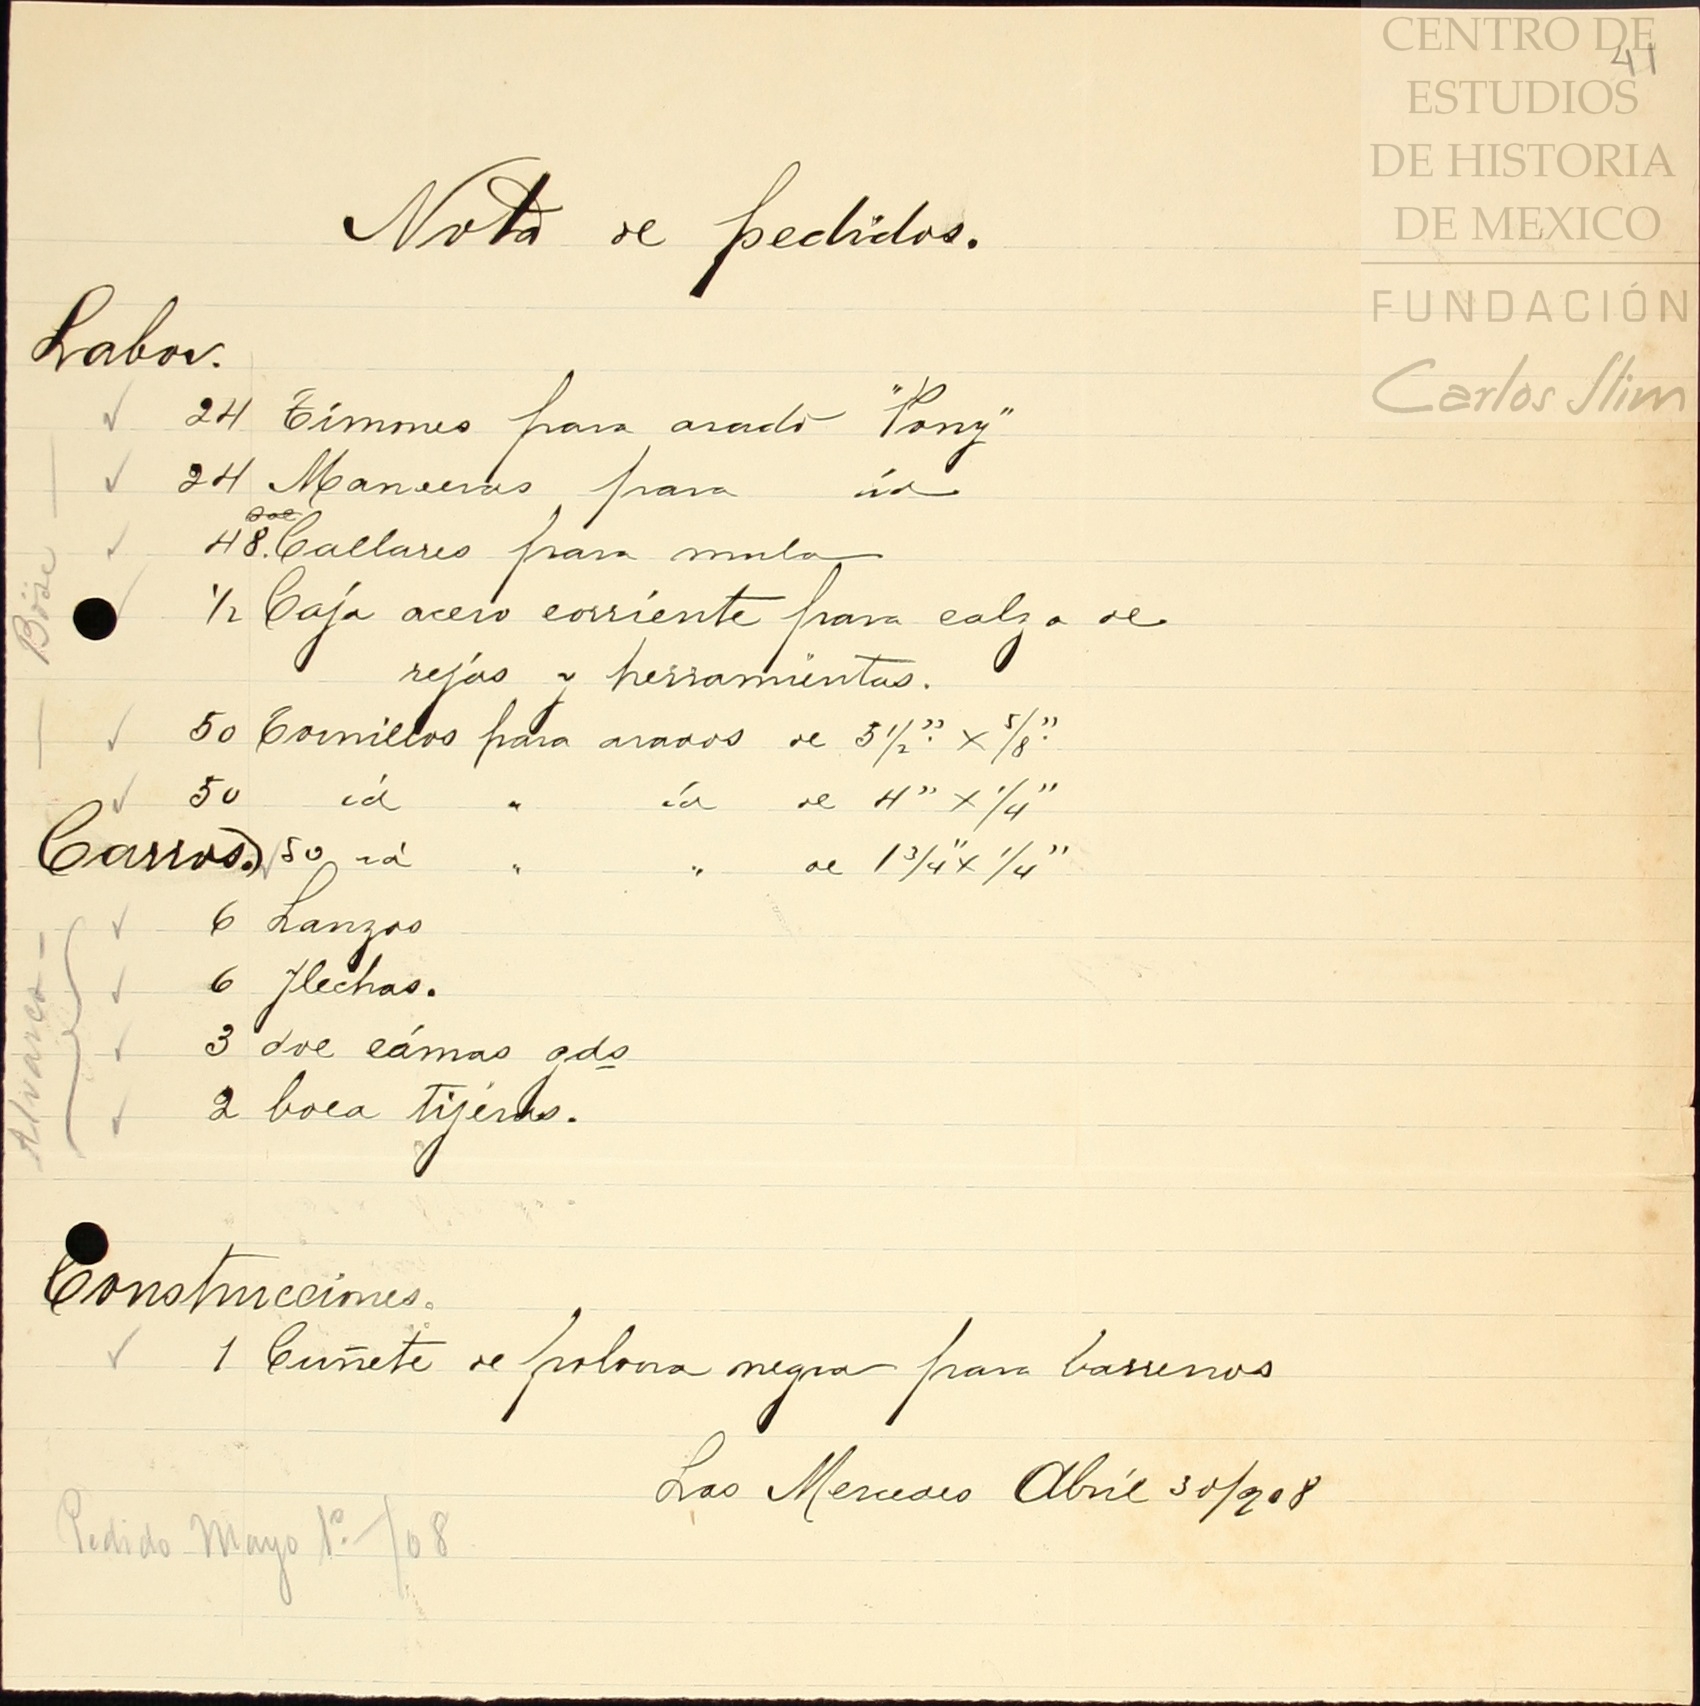 CENTRO DE
ESTUDIOS
DE HISTORIA
DE MEXICO
FUNDACIÓN
Carlos Slim
41
Nota de pedidos.
Labor.
✓ 24 Timones para arado "Pony"
✓ 24 Manceras para id
✓ 48. Collares para mula
✓ 1/2 Caja acero corriente para calza de
rejas y herramientas.
✓ 50 Tornillos para arados de 5 1/2" x 5/8"
✓ 50 id " id de 4" x 1/4"
✓ 50 id " " de 1 3/4" x 1/4"
Böse
Carros.
✓ 6 Lanzas
✓ 6 flechas.
✓ 3 doc cámas gds
✓ 2 boca tijeras.
Alvarez
Construcciones.
✓ 1 Cuñete de polvora negra para barrenos
Las Mercedes Abril 30/908
Pedido Mayo 1º-/08